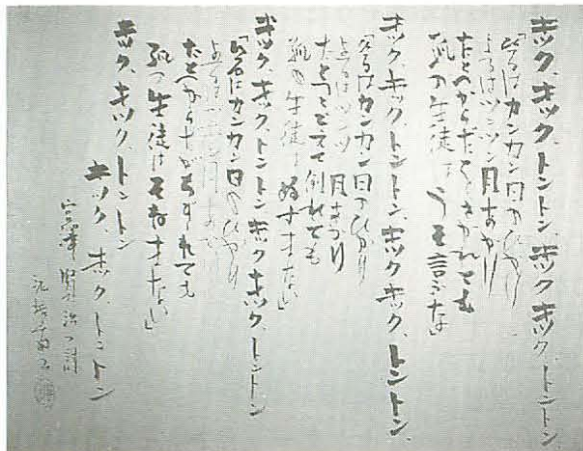 キック、キック、トントン、キックキック、トントン
「ひるはカンカン日のひかり
よるはツンツン月あかり
たとへからだを、さかれても
狐の生徒はうそ言ふな」
キック、キック、トントン、キックキック、トントン、
「ひるはカンカン日のひかり
よるはツンツン月あかり
たとへこごえて倒れても
狐の生徒はぬすまない」
キック、キック、トントン、キックキック、トントン
「ひるはカンカン日のひかり
よるはツンツン月あかり
たとへからだがちぎれても
狐の生徒はそねまない」
キック、キック、トントン
キック、キック、トントン
宮澤賢治の詩